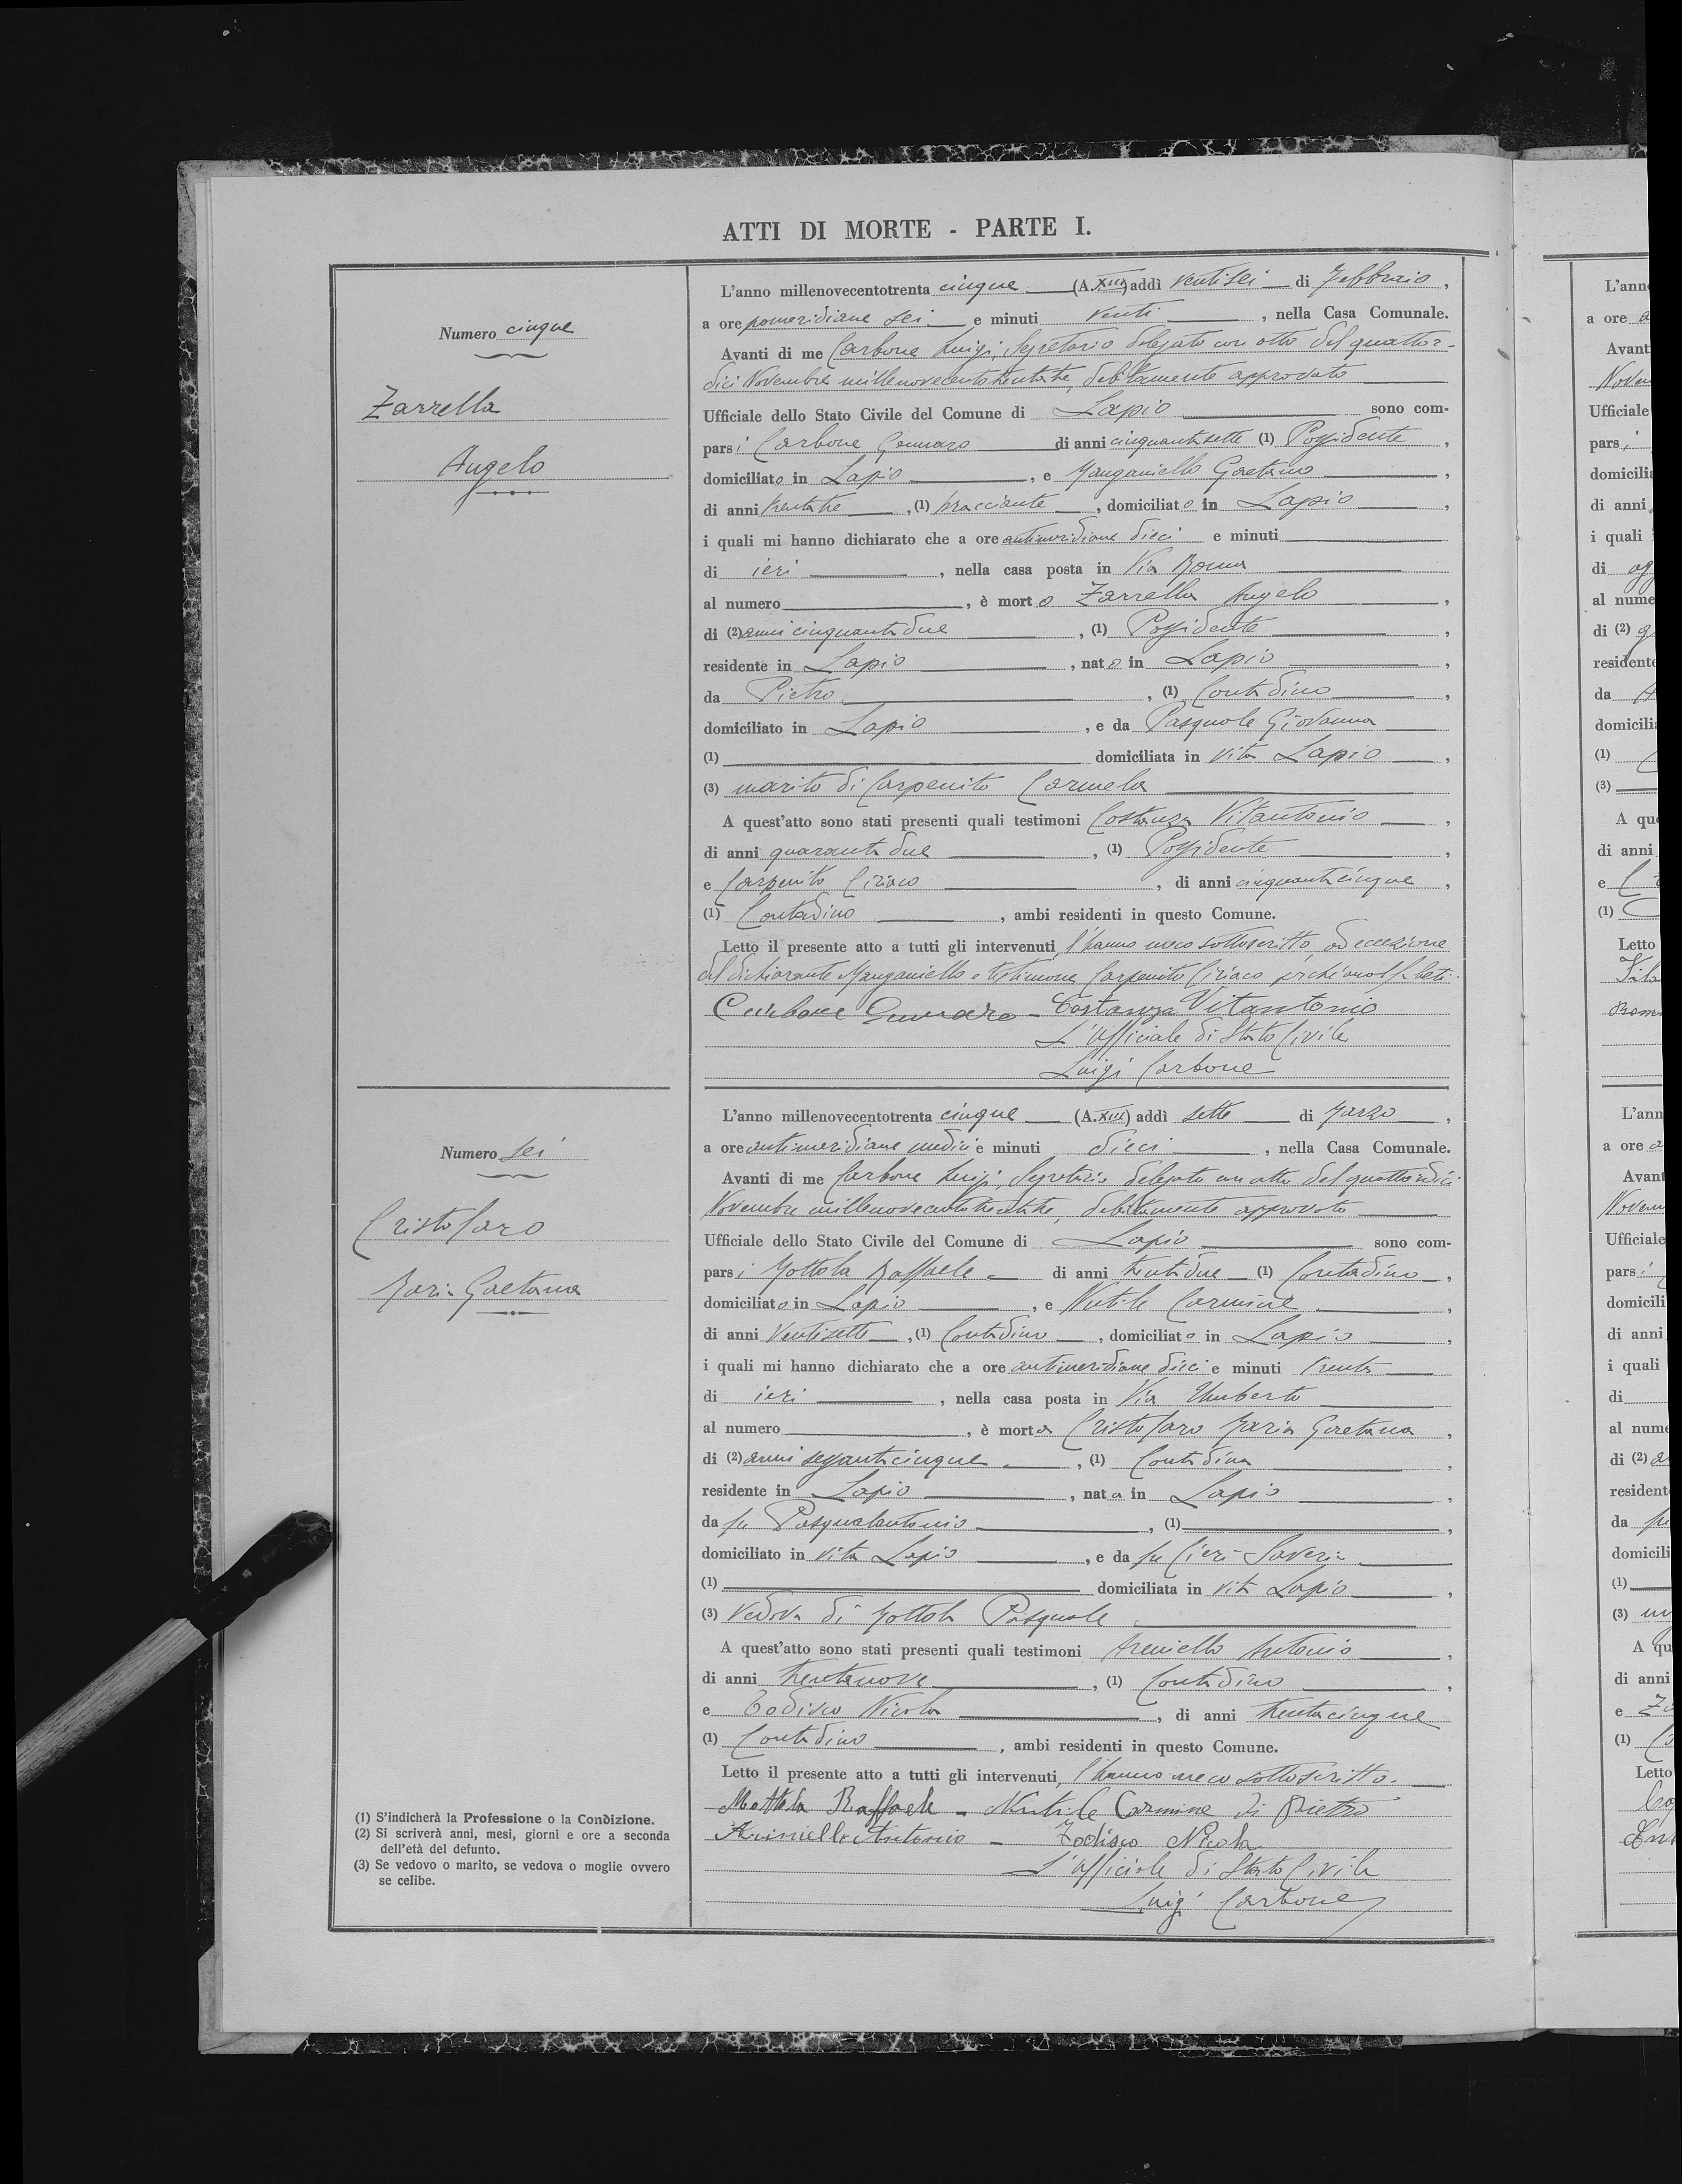 ATTI DI MORTE - PARTE I.
Numero cinque
Zarrella
Angelo
L'anno millenovecentotrenta cinque (A. XIII) addì ventisei di Febbraio,
a ore pomeridiane sei e minuti venti, nella Casa Comunale.
Avanti di me Carbone Luigi, Segretario delegato con atto del quattor-
dici Novembre millenovecentotrentatre, debitamente approvato
Ufficiale dello Stato Civile del Comune di Lapio sono com-
parsi Carbone Gennaro di anni cinquantasette (1) Possidente,
domiciliato in Lapio, e Manganiello Gaetano,
di anni trentatre, (1) bracciante, domiciliato in Lapio,
i quali mi hanno dichiarato che a ore antimeridiane dieci e minuti
di ieri, nella casa posta in Via Roma
al numero, è morto Zarrella Angelo,
di (2) anni cinquantadue, (1) Possidente,
residente in Lapio, nato in Lapio,
da Pietro, (1) Contadino,
domiciliato in Lapio, e da Pasquale Giovanna
(1) domiciliata in vita Lapio,
(3) marito di Carpenito Carmela
A quest'atto sono stati presenti quali testimoni Costanza Vitantonio,
di anni quarantadue, (1) Possidente,
e Carpenito Ciriaco, di anni cinquantacinque,
(1) Contadino, ambi residenti in questo Comune.
Letto il presente atto a tutti gli intervenuti, l'hanno meco sottoscritto, ad eccezione
del dichiarante Manganiello e testimone Carpenito Ciriaco perchè analfabeti.
Carbone Gennaro - Costanza Vitantonio
L'Ufficiale di Stato Civile
Luigi Carbone
Numero sei
Cristofaro
Maria Gaetana
L'anno millenovecentotrenta cinque (A. XIII) addì sette di Marzo,
a ore antimeridiane undici e minuti dieci, nella Casa Comunale.
Avanti di me Carbone Luigi, Segretario delegato con atto del quattordici
Novembre millenovecentotrentatre, debitamente approvato
Ufficiale dello Stato Civile del Comune di Lapio sono com-
parsi Mottola Raffaele di anni trentadue (1) Contadino,
domiciliato in Lapio, e Nutile Carmine,
di anni ventisette, (1) Contadino, domiciliato in Lapio,
i quali mi hanno dichiarato che a ore antimeridiane dieci e minuti trenta
di ieri, nella casa posta in Via Umberto
al numero, è morta Cristofaro Maria Gaetana,
di (2) anni sessanticinque, (1) Contadina,
residente in Lapio, nata in Lapio,
da fu Pasqualantonio, (1),
domiciliato in vita Lapio, e da fu Cieri Saveria
(1) domiciliata in vita Lapio,
(3) vedova di Mottola Pasquale
A quest'atto sono stati presenti quali testimoni Areniello Antonio,
di anni trentanove, (1) Contadino,
e Todisco Nicola, di anni trentacinque
(1) Contadino, ambi residenti in questo Comune.
Letto il presente atto a tutti gli intervenuti, l'hanno meco sottoscritto.
Mottola Raffaele - Nutile Carmine di Pietro
Antonio - Todisco Nicola
L'Ufficiale di Stato Civile
Luigi Carbone
(1) S'indicherà la Professione o la Condizione.
(2) Si scriverà anni, mesi, giorni e ore a seconda
dell'età del defunto.
(3) Se vedovo o marito, se vedova o moglie ovvero
se celibe.